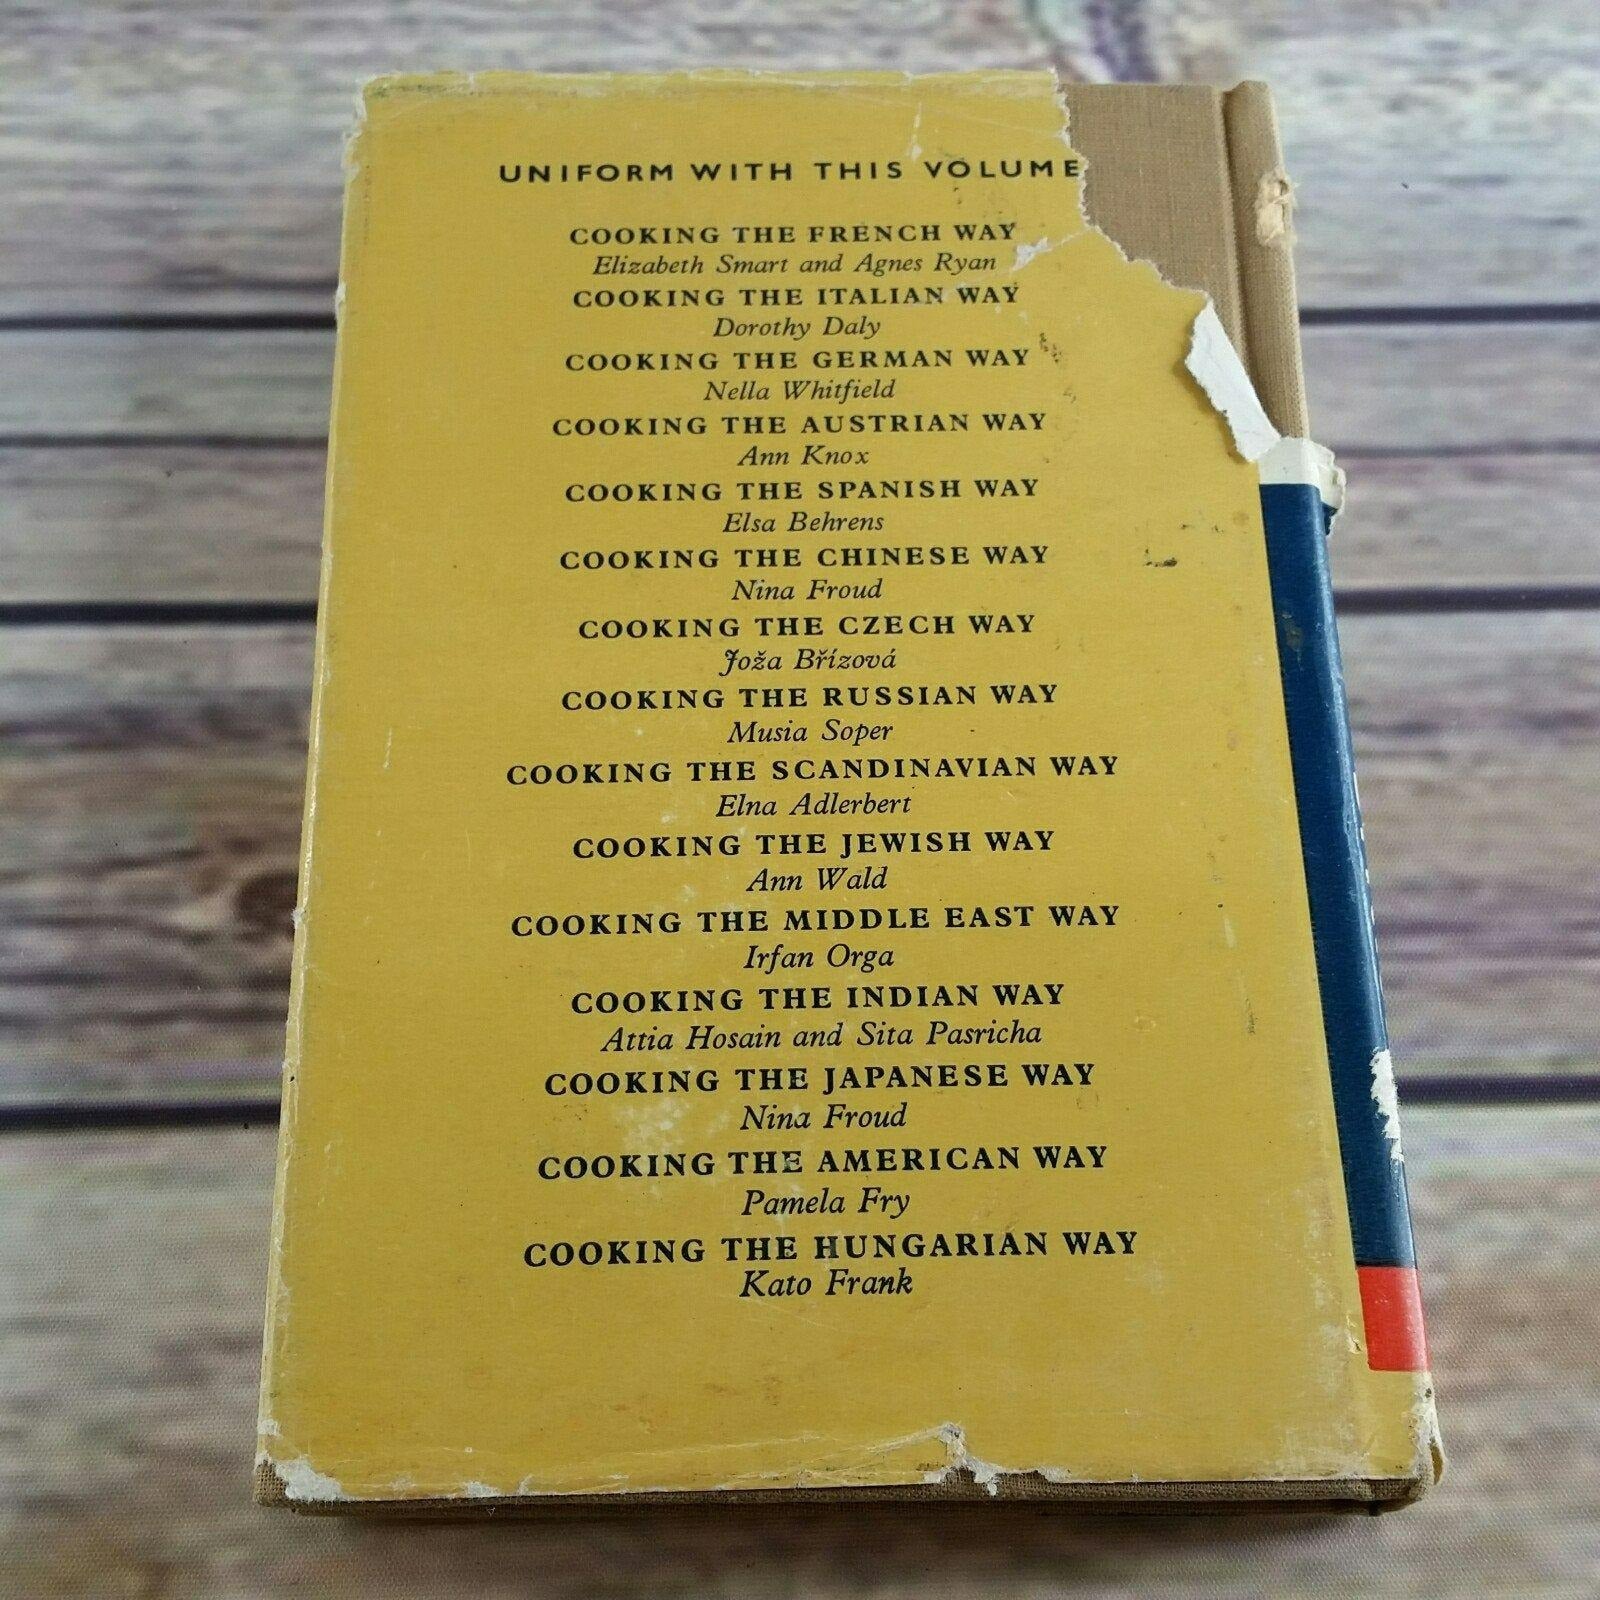 UNIFORM WITH THIS VOLUME
COOKING THE FRENCH WAY
Elizabeth Smart and Agnes Ryan
COOKING THE ITALIAN WAY
Dorothy Daly
COOKING THE GERMAN WAY
Nella Whitfield
COOKING THE AUSTRIAN WAY
Ann Knox
COOKING THE SPANISH WAY
Elsa Behrens
COOKING THE CHINESE WAY
Nina Froud
COOKING THE CZECH WAY
Joža Břízová
COOKING THE RUSSIAN WAY
Musia Soper
COOKING THE SCANDINAVIAN WAY
Elna Adlerbert
COOKING THE JEWISH WAY
Ann Wald
COOKING THE MIDDLE EAST WAY
Irfan Orga
COOKING THE INDIAN WAY
Attia Hosain and Sita Pasricha
COOKING THE JAPANESE WAY
Nina Froud
COOKING THE AMERICAN WAY
Pamela Fry
COOKING THE HUNGARIAN WAY
Kato Frank